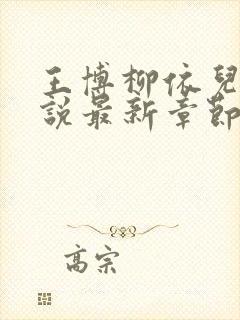 王博柳依兒
說最新章節
高宗